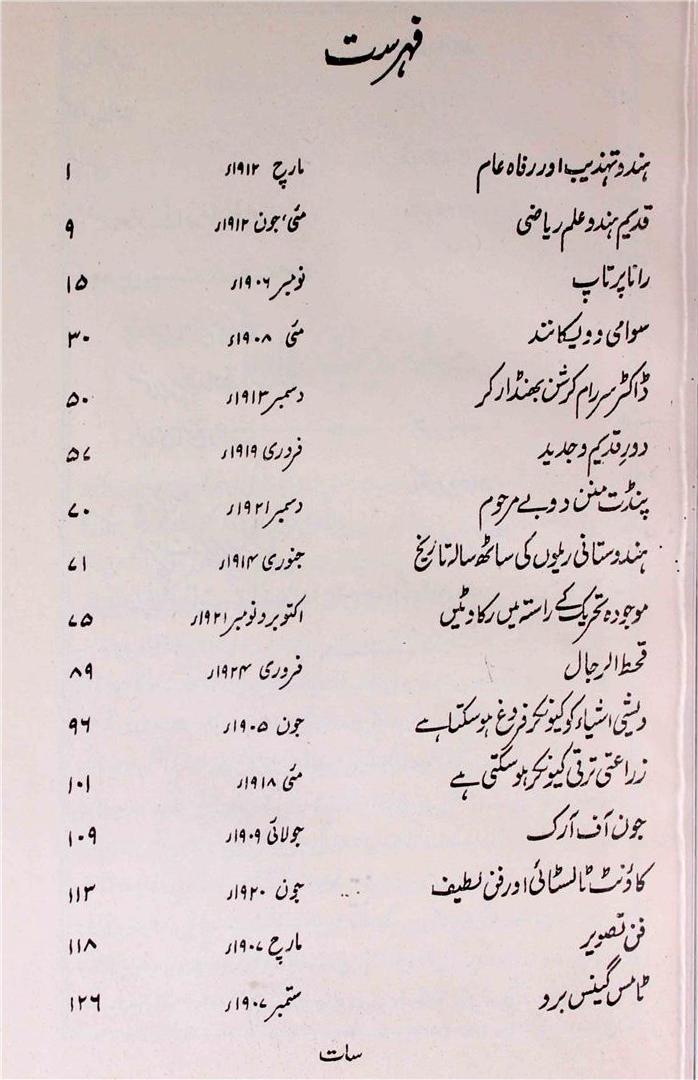 فہرست
ہندو تہذیب اور رفاہ عام مارچ ۱۹۱۲ء ۱
قدیم ہندو علم ریاضی مئی، جون ۱۹۱۲ء ۹
رانا پرتاپ نومبر ۱۹۰۶ء ۱۵
سوامی وویکانند مئی ۱۹۰۸ء ۳۰
ڈاکٹر سر رام کرشن بھنڈارکر دسمبر ۱۹۱۳ء ۵۰
دورِ قدیم و جدید فروری ۱۹۱۹ء ۵۷
پنڈت منن دوبے مرحوم دسمبر ۱۹۲۱ء ۷۰
ہندوستانی ریلوں کی ساٹھ سالہ تاریخ جنوری ۱۹۱۴ء ۷۱
موجودہ تحریک کے راستہ میں رکاوٹیں اکتوبر و نومبر ۱۹۲۱ء ۷۵
قحط الرجال فروری ۱۹۲۴ء ۸۹
دیشی اشیاء کو کیونکر فروغ ہوسکتا ہے جون ۱۹۰۵ء ۹۶
زراعتی ترقی کیونکر ہوسکتی ہے مئی ۱۹۱۸ء ۱۰۱
جون آف آرک جولائی ۱۹۰۹ء ۱۰۹
کاؤنٹ ٹالسٹائی اور فن لطیف جون ۱۹۲۰ء ۱۱۳
فن تصویر مارچ ۱۹۰۷ء ۱۱۸
ٹامس گینس برو ستمبر ۱۹۰۷ء ۱۲۶
سات